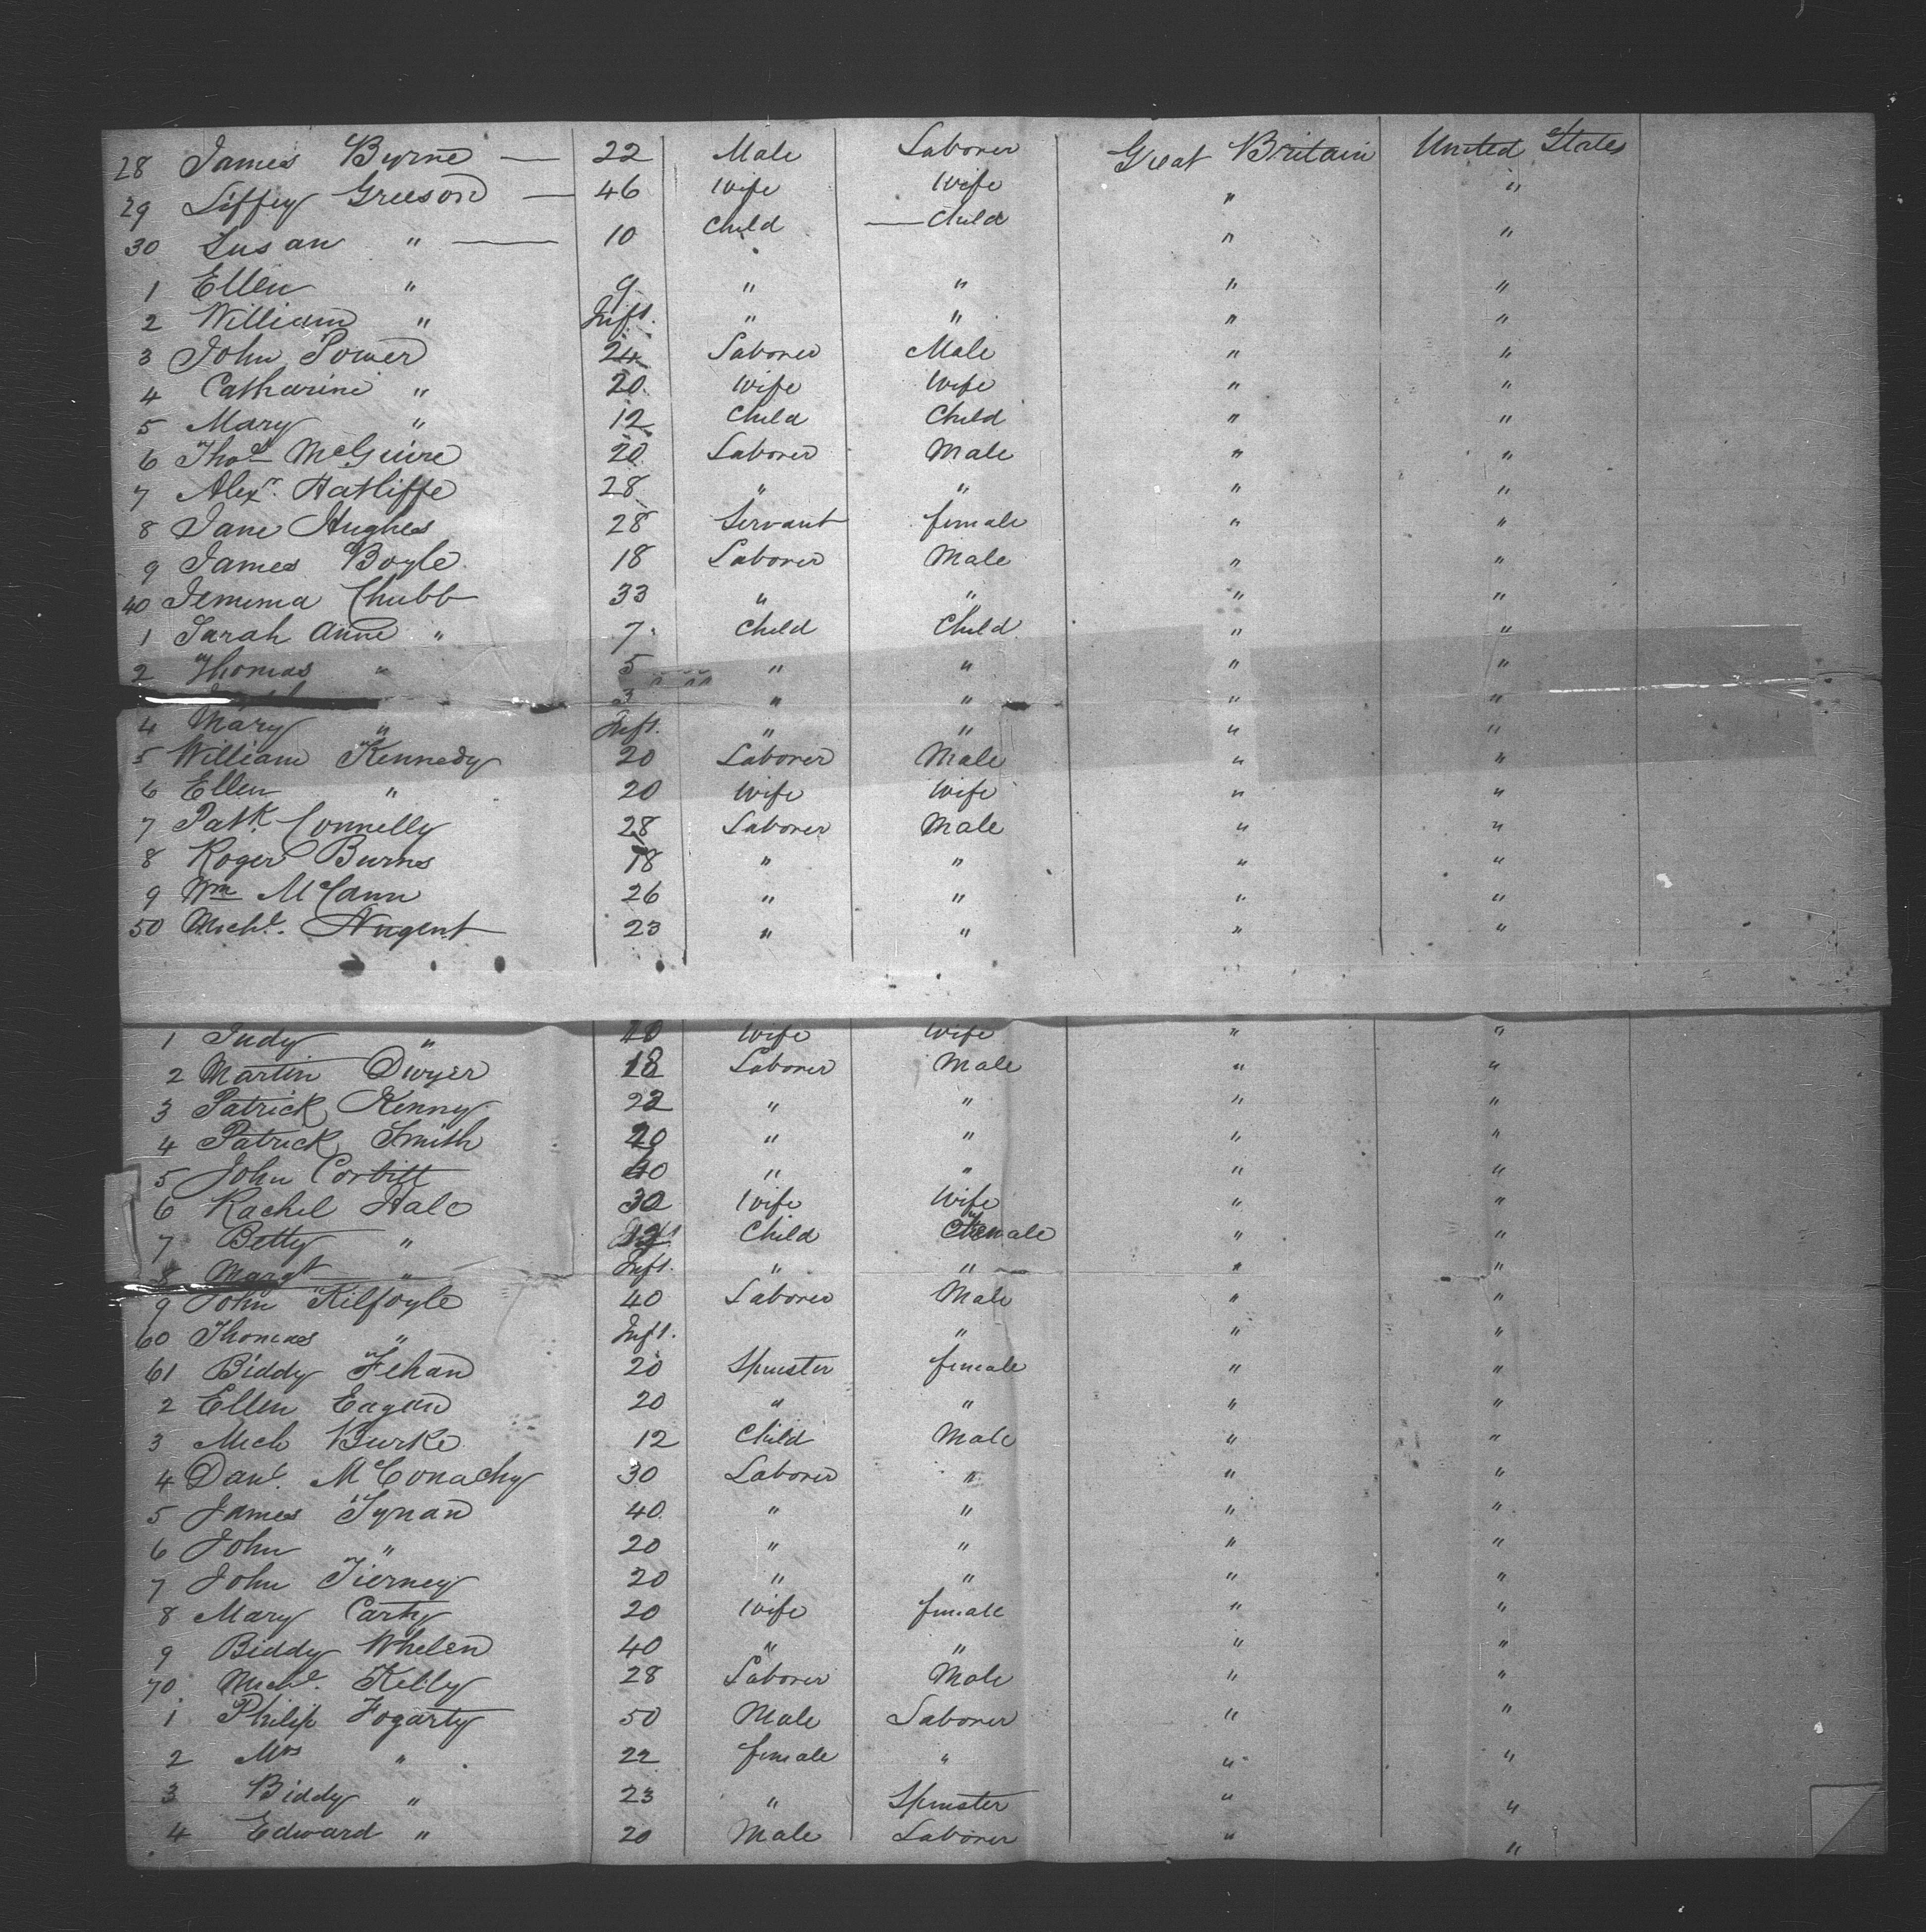 28 James Byrne — 22 Male Laborer Great Britain United States
29 Liffey Greeson — 46 Wife Wife " "
30 Susan " — 10 Child — Child " "
1 Ellen " 9 " " " "
2 William " Inft. " " " "
3 John Power 24 Laborer Male " "
4 Catharine " 20 Wife Wife " "
5 Mary " 12 Child Child " "
6 Thos McGuire 20 Laborer Male " "
7 Alexr. Hatliffe 28 " " " "
8 Jane Hughes 28 Servant female " "
9 James Boyle 18 Laborer Male " "
40 Jemima Chubb 33 " " " "
1 Sarah Anne " 7 Child Child " "
2 Thomas " 5 " " " "
3 " " " "
4 Mary " Inft. " " " "
5 William Kennedy 20 Laborer Male " "
6 Ellen " 20 Wife Wife " "
7 Patk. Connelly 28 Laborer Male " "
8 Roger Burns 18 " " " "
9 Wm McCann 26 " " " "
50 Michl. Nugent 23 " " " "
1 Judy " 20 Wife Wife " "
2 Martin Dwyer 18 Laborer Male " "
3 Patrick Kenny 22 " " " "
4 Patrick Smith 20 " " " "
5 John Corbitt 40 " " " "
6 Rachel Hale 30 Wife Wife " "
7 Betty " Child female " "
8 Margt " Inft. " " " "
9 John Kilfoyle 40 Laborer Male " "
60 Thomas " Inft. " " "
61 Biddy Fehan 20 Spinster female " "
2 Ellen Eagan 20 " " " "
3 Mich Burke 12 Child Male " "
4 Danl. McConachy 30 Laborer " " "
5 James Tynan 40 " " " "
6 John " 20 " " " "
7 John Tierney 20 " " " "
8 Mary Carty 20 Wife female " "
9 Biddy Whelen 40 " " " "
70 Michl. Kelly 28 Laborer Male " "
1 Philip Fogarty 50 Male Laborer " "
2 Mrs " 22 female " " "
3 Biddy " 23 " Spinster " "
4 Edward " 20 Male Laborer " "